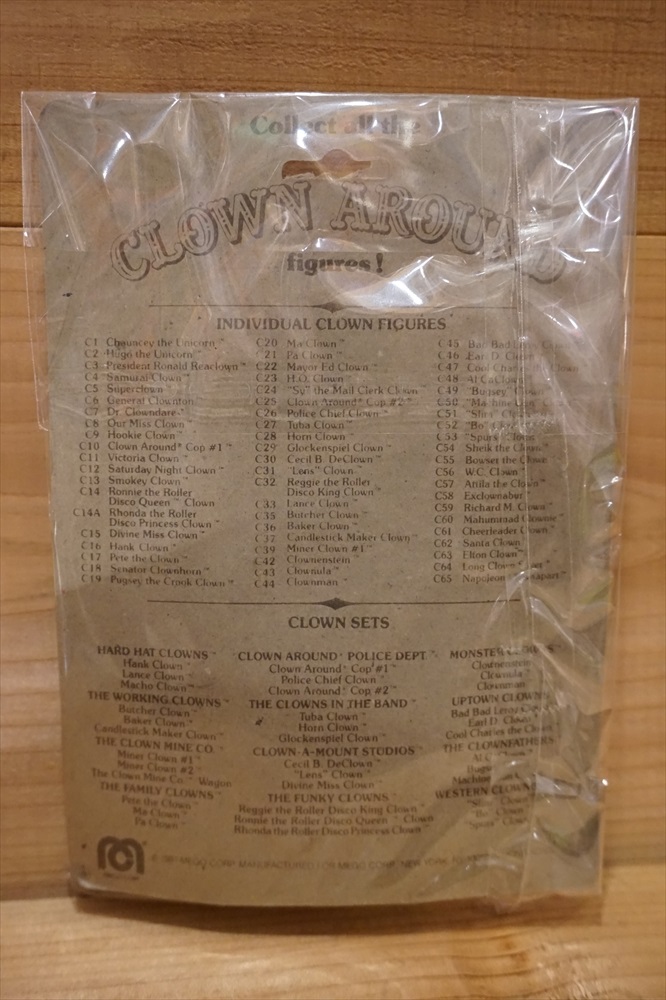 Collect all the
CLOWN AROUND
figures!
INDIVIDUAL CLOWN FIGURES
C1 Chauncey the Unicorn™
C2 Hugo the Unicorn™
C3 President Ronald Reaclown™
C4 Samurai Clown™
C5 Superclown™
C6 General Clownton
C7 Dr. Clowndare™
C8 Our Miss Clown™
C9 Hookie Clown™
C10 Clown Around® Cop #1™
C11 Victoria Clown™
C12 Saturday Night Clown™
C13 Smokey Clown™
C14 Ronnie the Roller
Disco Queen™ Clown
C14A Rhonda the Roller
Disco Princess Clown™
C15 Divine Miss Clown™
C16 Hank Clown™
C17 Pete the Clown™
C18 Senator Clownhorn™
C19 Pugsey the Crook Clown™
C20 Ma Clown™
C21 Pa Clown™
C22 Mayor Ed Clown™
C23 H.O. Clown™
C24 "Sy" the Mail Clerk Clown
C25 Clown Around® Cop #2™
C26 Police Chief Clown™
C27 Tuba Clown™
C28 Horn Clown™
C29 Glockenspiel Clown™
C30 Cecil B. DeClown™
C31 "Lens" Clown™
C32 Reggie the Roller
Disco King Clown™
C33 Lance Clown™
C35 Butcher Clown™
C36 Baker Clown™
C37 Candlestick Maker Clown™
C39 Miner Clown #1™
C42 Clownenstein™
C43 Clownula™
C44 Clownman™
C45 Bad Bad Leroy Clown
C46 Earl D. Clown
C47 Cool Charlie the Clown
C48 Al CaClown
C49 "Bugsey" Clown
C50 "Machine Gun
C51 "Slim" Clown
C52 "Bo" Clown
C53 "Spurs" Clown
C54 Sheik the Clown
C55 Bowser the Clown
C56 W.C. Clown™
C57 Atila the Clown™
C58 Exclownabur
C59 Richard M. Clown™
C60 Mahumraad Clownie™
C61 Cheerleader Clown™
C62 Santa Clown™
C63 Elton Clown™
C64 Long Clown
C65 Napoleon
CLOWN SETS
HARD HAT CLOWNS™
Hank Clown™
Lance Clown™
Macho Clown™
THE WORKING CLOWNS™
Butcher Clown™
Baker Clown™
Candlestick Maker Clown™
THE CLOWN MINE CO.™
Miner Clown #1™
Miner Clown #2™
The Clown Mine Co.™ Wagon
THE FAMILY CLOWNS™
Pete the Clown™
Ma Clown™
Pa Clown™
CLOWN AROUND® POLICE DEPT™
Clown Around® Cop #1™
Police Chief Clown™
Clown Around® Cop #2™
THE CLOWNS IN THE BAND™
Tuba Clown™
Horn Clown™
Glockenspiel Clown™
CLOWN-A-MOUNT STUDIOS™
Cecil B. DeClown™
"Lens" Clown™
Divine Miss Clown™
THE FUNKY CLOWNS™
Reggie the Roller Disco King Clown™
Ronnie the Roller Disco Queen™ Clown
Rhonda the Roller Disco Princess Clown™
MONSTER CLOWNS™
Clownenstein
Clownula™
Clownman
UPTOWN CLOWNS
Bad Bad Leroy Clown
Earl D. Clown™
Cool Charles the Clown
THE CLOWNFATHERS
Al C
Bugs
Machine
WESTERN CLOWNS
"Slim" Clown
"Bo" Clown
"Spurs" Clown
© 1981 MEGO CORP. MANUFACTURED FOR MEGO CORP., NEW YORK, NY